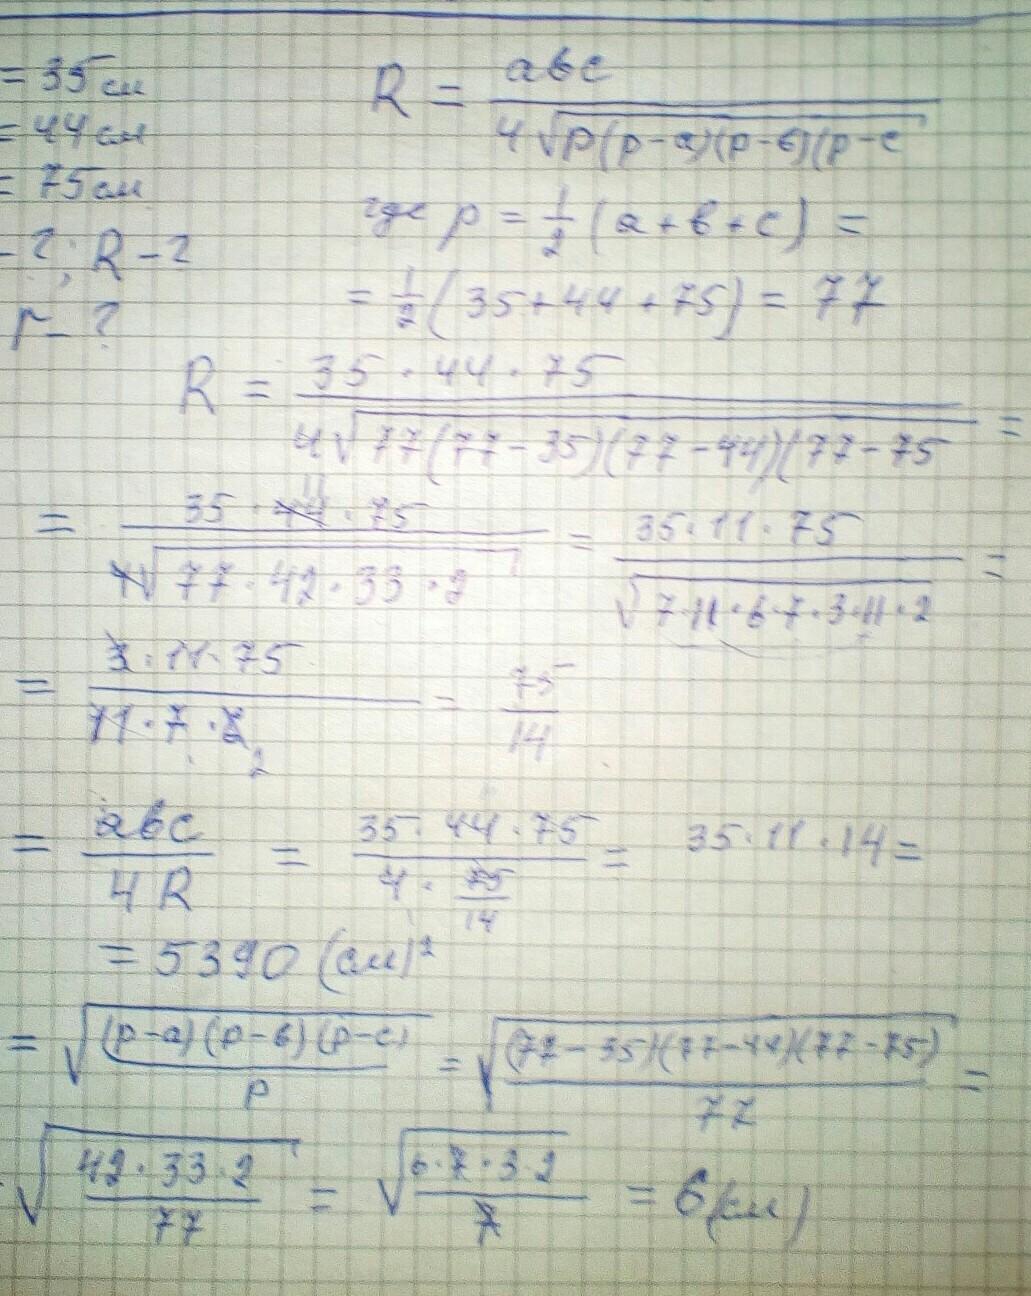 = 35 см
= 44 см
= 75 см
- ?; R - ?
r - ?
R = abc / 4√p(p-a)(p-b)(p-c
где p = 1/2 (a+b+c) =
= 1/2 (35+44+75) = 77
R = 35·44·75 / 4√77(77-35)(77-44)(77-75 =
= 35·44·75 / 4√77·42·33·2 = 35·11·75 / √7·11·6·7·3·11·2 =
= 3·11·75 / 11·7·2 = 75/14
= abc / 4R = 35·44·75 / 4·75/14 = 35·11·14 =
= 5390 (см)²
= √(p-a)(p-b)(p-c) / p = √(77-35)(77-44)(77-75) / 77 =
√42·33·2 / 77 = √6·7·3·2 / 7 = 6 (см)